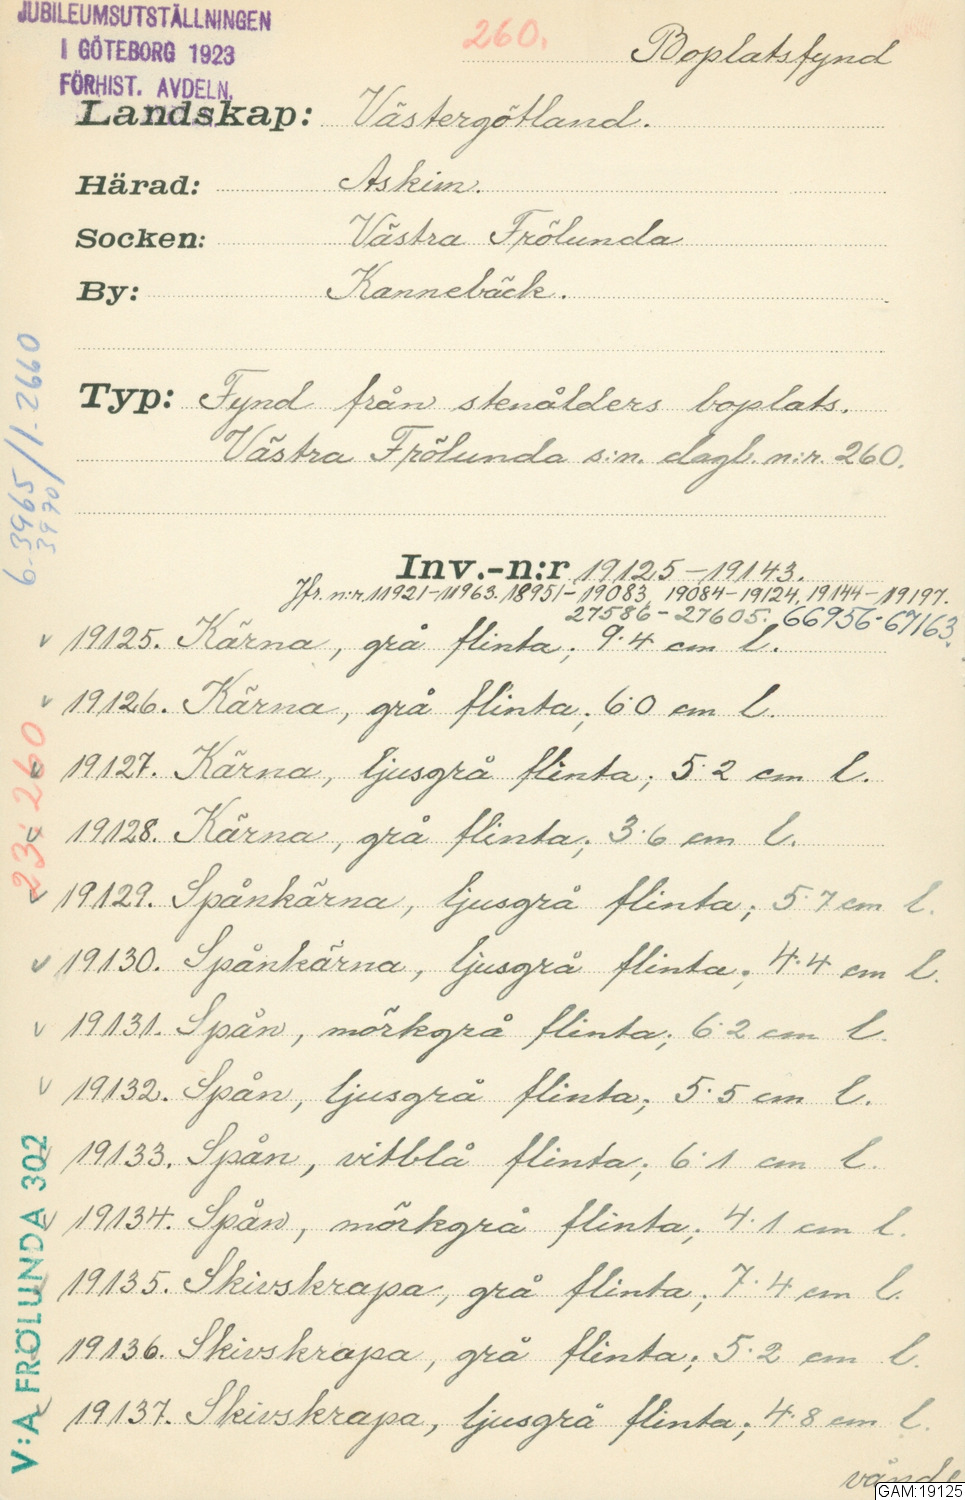 JUBILEUMSUTSTÄLLNINGEN
I GÖTEBORG 1923
FÖRHIST. AVDELN.
260.
Boplatsfynd
Landskap: Västergötland.
Härad: Askim.
Socken: Västra Frölunda
By: Kannebäck.
Typ: Fynd från stenålders boplats.
Västra Frölunda s:n. dagl. n:r. 260.
Inv.-n:r 19125-19143.
Jfr. n:r. 11921-11963. 18951-19083, 19084-19124, 19144-19197.
27586-27605. 66956-67163.
19125. Kärna, grå flinta; 9.4 cm l.
19126. Kärna, grå flinta; 6.0 cm l.
19127. Kärna, ljusgrå flinta; 5.2 cm l.
19128. Kärna, grå flinta; 3.6 cm l.
19129. Spånkärna, ljusgrå flinta; 5.7 cm l.
19130. Spånkärna, ljusgrå flinta; 4.4 cm l.
19131. Spån, mörkgrå flinta; 6.2 cm l.
19132. Spån, ljusgrå flinta; 5.5 cm l.
19133. Spån, vitblå flinta; 6.1 cm l.
19134. Spån, mörkgrå flinta; 4.1 cm l.
19135. Skivskrapa, grå flinta; 7.4 cm l.
19136. Skivskrapa, grå flinta; 5.2 cm l.
19137. Skivskrapa, ljusgrå flinta; 4.8 cm l.
vände
6-3965/1-2660
3970/
23:260
V:A FRÖLUNDA 302
GAM:19125